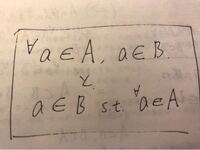 ∀a ∈ A, a ∈ B.
と
a ∈ B s.t. ∀a ∈ A